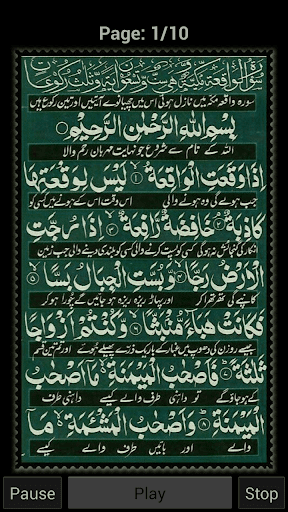 Page: 1/10
سورہ واقعہ مکہ میں نازل ہوئی اس میں چھیانوے آیتیں اور تین رکوع ہیں
بِسْمِ اللهِ الرَّحْمٰنِ الرَّحِيْمِ
اللہ کے نام سے شروع جو نہایت مہربان رحم والا
اِذَا وَقَعَتِ الْوَاقِعَةُ ۙ۱ لَيْسَ لِوَقْعَتِهَا
جب ہولے گی وہ ہونے والی اس وقت اس کے ہونے میں کسی کو
كَاذِبَةٌ ۘ۲ خَافِضَةٌ رَّافِعَةٌ ۙ۳ اِذَا رُجَّتِ
انکار کی گنجائش نہ ہوگی کسی کو پست کرنے والی کسی کو بلندی دینے والی جب زمین
الْاَرْضُ رَجًّا ۙ۴ وَّبُسَّتِ الْجِبَالُ بَسًّا ۙ۵
کانپے گی تھرتھرا کر اور پہاڑ ریزہ ریزہ ہو جائیں گے چورا ہو کر
فَكَانَتْ هَبَآءً مُّنْۢبَثًّا ۙ۶ وَّكُنْتُمْ اَزْوَاجًا
جیسے روزن کی دھوپ میں غبار کے باریک ذرے پھیلے ہوئے اور تم تین قسم
ثَلٰثَةً ؕ۷ فَاَصْحٰبُ الْمَيْمَنَةِ ۙ مَاۤ اَصْحٰبُ
کے ہو جاؤ گے تو داہنی طرف والے کیسے داہنی طرف
الْمَيْمَنَةِ ؕ۸ وَاَصْحٰبُ الْمَشْـَٔمَةِ ۙ مَاۤ
والے اور بائیں طرف والے کیسے
Pause Play Stop